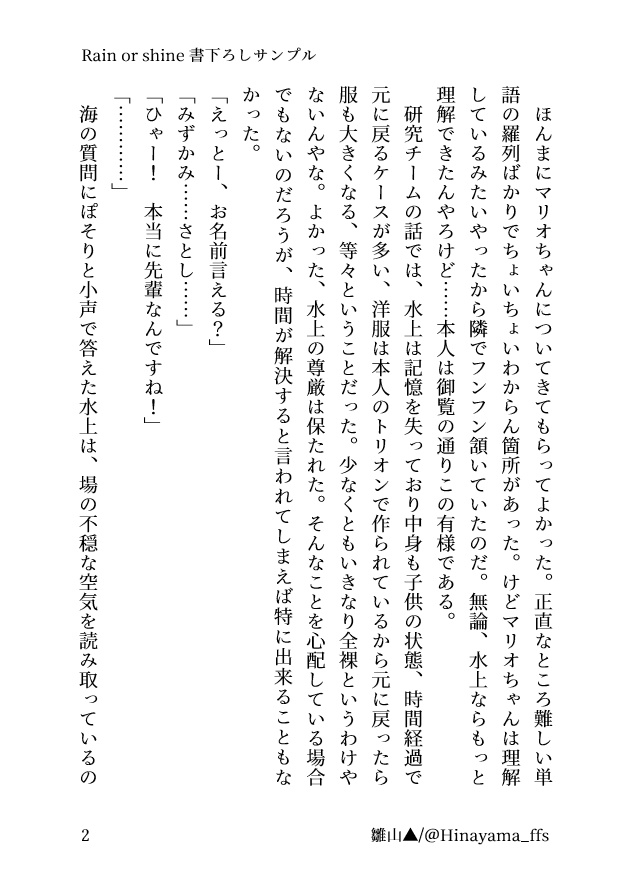 Rain or shine 書下ろしサンプル
　ほんまにマリオちゃんについてきてもらってよかった。正直なところ難しい単
語の羅列ばかりでちょいちょいわからん箇所があった。けどマリオちゃんは理解
しているみたいやったから隣でフンフン頷いていたのだ。無論、水上ならもっと
理解できたんやろけど……本人は御覧の通りこの有様である。
　研究チームの話では、水上は記憶を失っており中身も子供の状態、時間経過で
元に戻るケースが多い、洋服は本人のトリオンで作られているから元に戻ったら
服も大きくなる、等々ということだった。少なくともいきなり全裸というわけや
ないんやな。よかった、水上の尊厳は保たれた。そんなことを心配している場合
でもないのだろうが、時間が解決すると言われてしまえば特に出来ることもな
かった。
「えっとー、お名前言える？」
「みずかみ……さとし……」
「ひゃー！　本当に先輩なんですね！」
「…………」
　海の質問にぽそりと小声で答えた水上は、場の不穏な空気を読み取っているの
2
雛山▲/@Hinayama_ffs